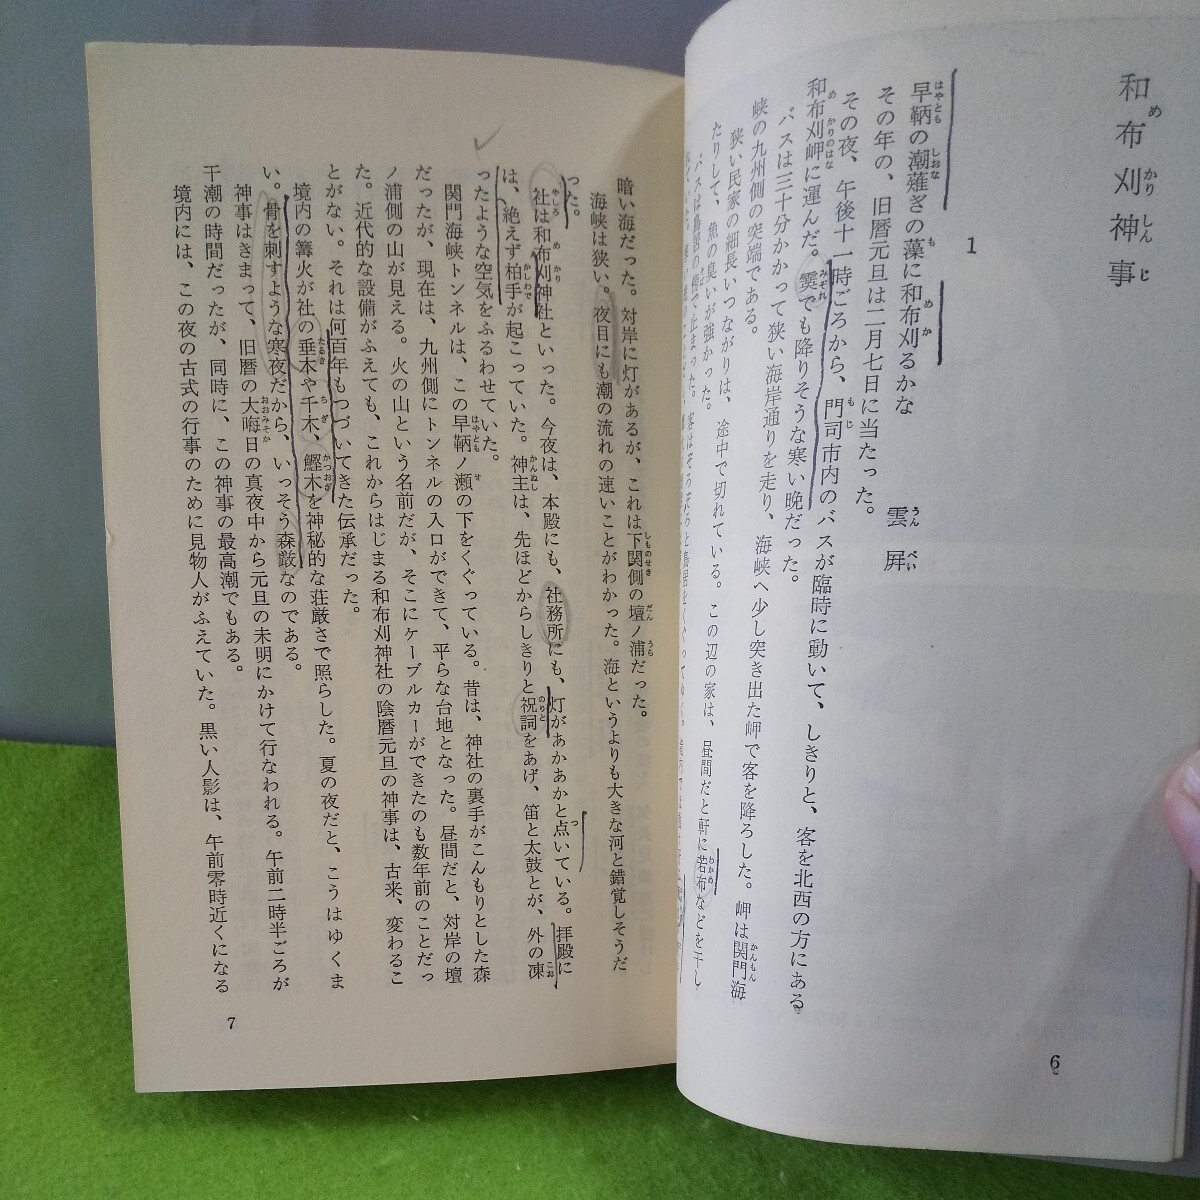 和布刈神事
1
早鞆の潮薙ぎの藻に和布刈るかな
雲屏
その年の、旧暦元旦は二月七日に当たった。
その夜、午後十一時ごろから、門司市内のバスが臨時に動いて、しきりと、客を北西の方にある
和布刈岬に運んだ。霙でも降りそうな寒い晩だった。
バスは三十分かかって狭い海岸通りを走り、海峡へ少し突き出た岬で客を降ろした。岬は関門海
峡の九州側の突端である。
狭い民家の細長いつながりは、途中で切れている。この辺の家は、昼間だと軒に若布などを干し
たりして、魚の臭いが強かった。
6
暗い海だった。対岸に灯があるが、これは下関側の壇ノ浦だった。
海峡は狭い。夜目にも潮の流れの速いことがわかった。海というよりも大きな河と錯覚しそうだ
った。
社は和布刈神社といった。今夜は、本殿にも、社務所にも、灯があかあかと点いている。拝殿に
は、絶えず柏手が起こっていた。神主は、先ほどからしきりと祝詞をあげ、笛と太鼓とが、外の凍
ったような空気をふるわせていた。
関門海峡トンネルは、この早鞆ノ瀬の下をくぐっている。昔は、神社の裏手がこんもりとした森
だったが、現在は、九州側にトンネルの入口ができて、平らな台地となった。昼間だと、対岸の壇
ノ浦側の山が見える。火の山という名前だが、そこにケーブルカーができたのも数年前のことだっ
た。近代的な設備がふえても、これからはじまる和布刈神社の陰暦元旦の神事は、古来、変わるこ
とがない。それは何百年もつづいてきた伝承だった。
境内の篝火が社の垂木や千木、鰹木を神秘的な荘厳さで照らした。夏の夜だと、こうはゆくま
い。骨を刺すような寒夜だから、いっそう森厳なのである。
神事はきまって、旧暦の大晦日の真夜中から元旦の未明にかけて行なわれる。午前二時半ごろが
干潮の時間だったが、同時に、この神事の最高潮でもある。
境内には、この夜の古式の行事のために見物人がふえていた。黒い人影は、午前零時近くになる
7